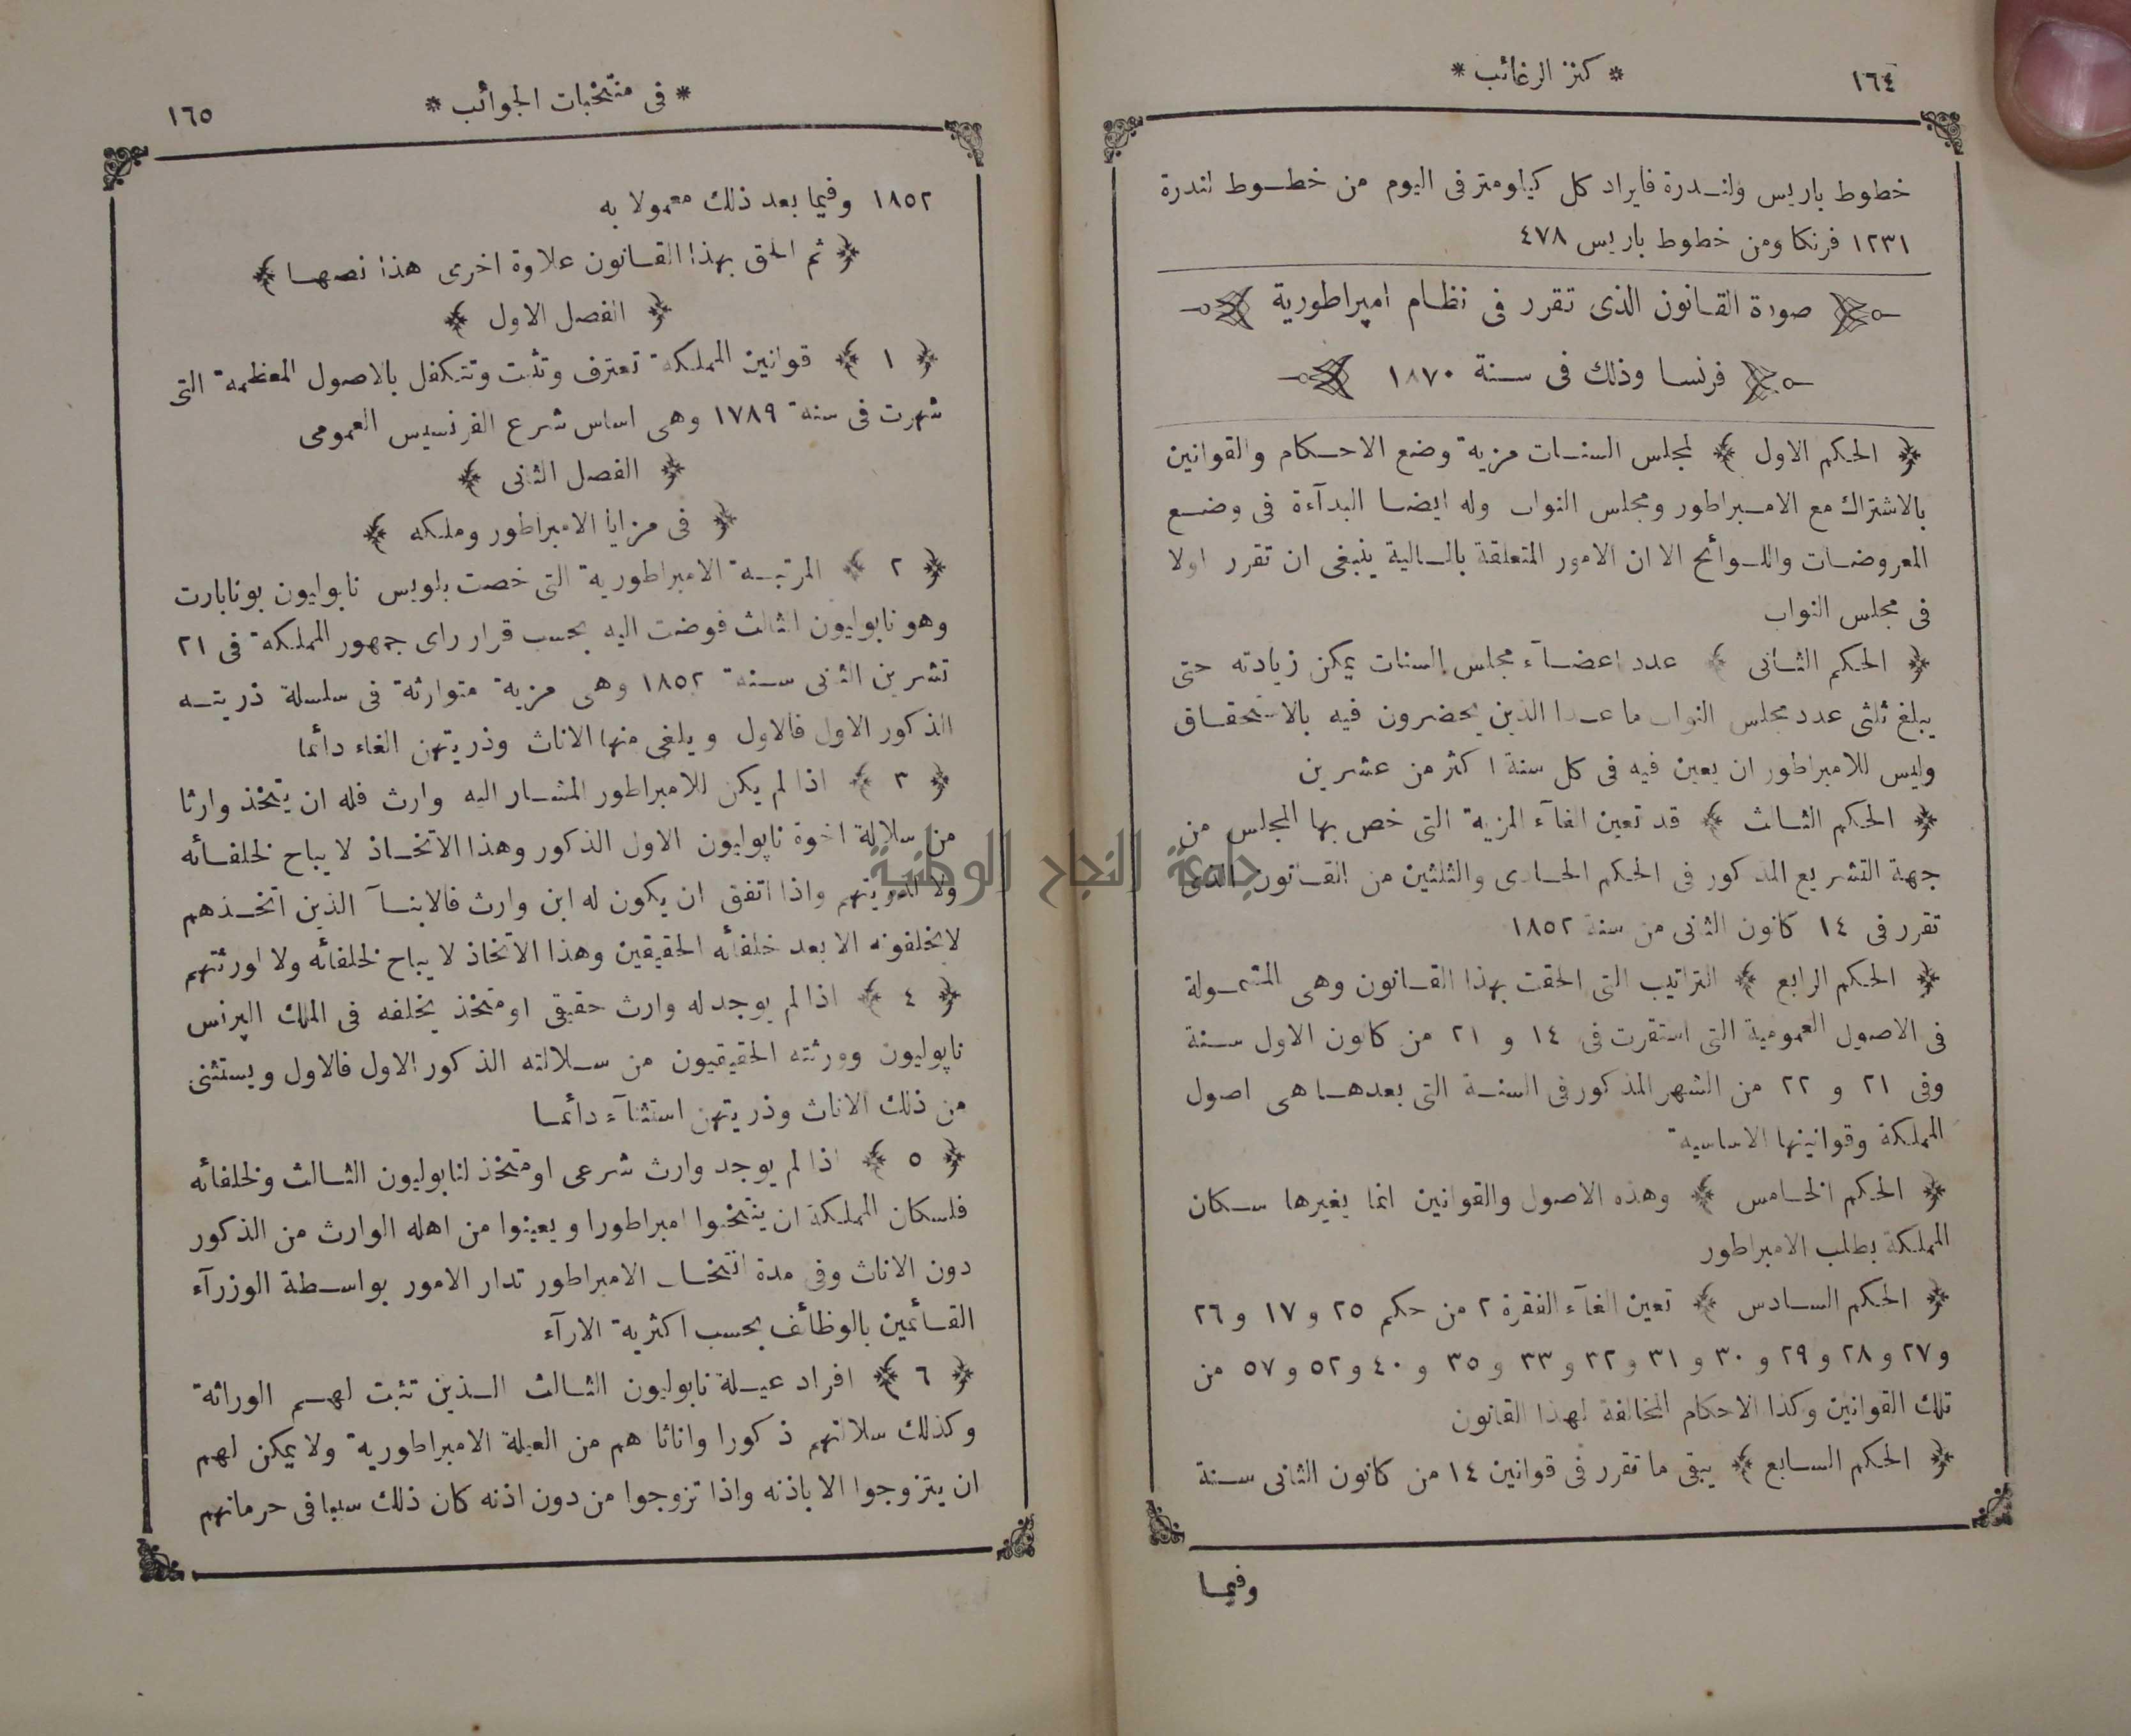 ١٦٤
* كنز الرغائب *
خطوط باريس ولندرة فايراد كل كيلومتر فى اليوم من خطوط لندرة
١٢٣١ فرنكا ومن خطوط باريس ٤٧٨
صورة القانون الذى تقرر فى نظام امپراطورية
فرنسا وذلك فى سنة ١٨٧٠
﴿ الحكم الاول ﴾ لمجلس السنات مزية وضع الاحكام والقوانين
بالاشتراك مع الامبراطور ومجلس النواب وله ايضا البدآءة فى وضع
المعروضات واللوائح الا ان الامور المتعلقة بالمالية ينبغى ان تقرر اولا
فى مجلس النواب
﴿ الحكم الثانى ﴾ عدد اعضآء مجلس السنات يمكن زيادته حتى
يبلغ ثلثى عدد مجلس النواب ما عدا الذين يحضرون فيه بالاستحقاق
وليس للامبراطور ان يعين فيه فى كل سنة اكثر من عشرين
﴿ الحكم الثالث ﴾ قد تعين الغآء المزية التى خص بها المجلس من
جهة التشريع المذكور فى الحكم الحادى والثلثين من القانون الذى
تقرر فى ١٤ كانون الثانى من سنة ١٨٥٢
﴿ الحكم الرابع ﴾ التراتيب التى الحقت بهذا القانون وهى المشمولة
فى الاصول العمومية التى استقرت فى ١٤ و ٢١ من كانون الاول سنة
وفى ٢١ و ٢٢ من الشهر المذكور فى السنة التى بعدها هى اصول
المملكة وقوانينها الاساسية
﴿ الحكم الخامس ﴾ وهذه الاصول والقوانين انما يغيرها سكان
المملكة بطلب الامبراطور
﴿ الحكم السادس ﴾ تعين الغآء الفقرة ٢ من حكم ٢٥ و ١٧ و ٢٦
و ٢٧ و ٢٨ و ٢٩ و ٣٠ و ٣١ و ٣٢ و ٣٣ و ٣٥ و ٤٠ و ٥٢ و ٥٧ من
تلك القوانين وكذا الاحكام المخالفة لهذا القانون
﴿ الحكم السابع ﴾ يبقى ما تقرر فى قوانين ١٤ من كانون الثانى سنة
وفيما
* فى منتخبات الجوائب *
١٦٥
١٨٥٢ وفيما بعد ذلك معمولا به
﴿ ثم الحق بهذا القانون علاوة اخرى هذا نصها ﴾
﴿ الفصل الاول ﴾
﴿ ١ ﴾ قوانين المملكة تعترف وتثبت وتتكفل بالاصول المعظمة التى
شهرت فى سنة ١٧٨٩ وهى اساس شرع الفرنسيس العمومى
﴿ الفصل الثانى ﴾
﴿ فى مزايا الامبراطور وملكه ﴾
﴿ ٢ ﴾ المرتبة الامبراطورية التى خصت بلويس نابوليون بونابارت
وهو نابوليون الثالث فوضت اليه بحسب قرار راى جمهور المملكة فى ٢١
تشرين الثانى سنة ١٨٥٢ وهى مزية متوارثة فى سلسلة ذريته
الذكور الاول فالاول ويلغى منها الاناث وذريتهن الغاء دائما
﴿ ٣ ﴾ اذا لم يكن للامبراطور المشار اليه وارث فله ان يتخذ وارثا
من سلالة اخوة ناپوليون الاول الذكور وهذا الاتخاذ لا يباح لخلفائه
ولا لذريتهم واذا اتفق ان يكون له ابن وارث فالابنآ الذين اتخذهم
لا يخلفونه الا بعد خلفائه الحقيقين وهذا الاتخاذ لا يباح لخلفائه ولا لورثتهم
﴿ ٤ ﴾ اذا لم يوجد له وارث حقيقى او متخذ يخلفه فى الملك الپرنس
ناپوليون وورثته الحقيقيون من سلالته الذكور الاول فالاول ويستثنى
من ذلك الاناث وذريتهن استثنآء دائما
﴿ ٥ ﴾ اذا لم يوجد وارث شرعى او متخذ لنابوليون الثالث ولخلفائه
فلسكان المملكة ان ينتخبوا امبراطورا ويعينوا من اهله الوارث من الذكور
دون الاناث وفى مدة انتخاب الامبراطور تدار الامور بواسطة الوزرآء
القائمين بالوظائف بحسب اكثرية الارآء
﴿ ٦ ﴾ افراد عيلة نابوليون الثالث الذين تثبت لهم الوراثة
وكذلك سلالتهم ذكورا واناثا هم من العيلة الامبراطورية ولا يمكن لهم
ان يتزوجوا الا باذنه واذا تزوجوا من دون اذنه كان ذلك سببا فى حرمانهم
جامعة النجاح الوطنية